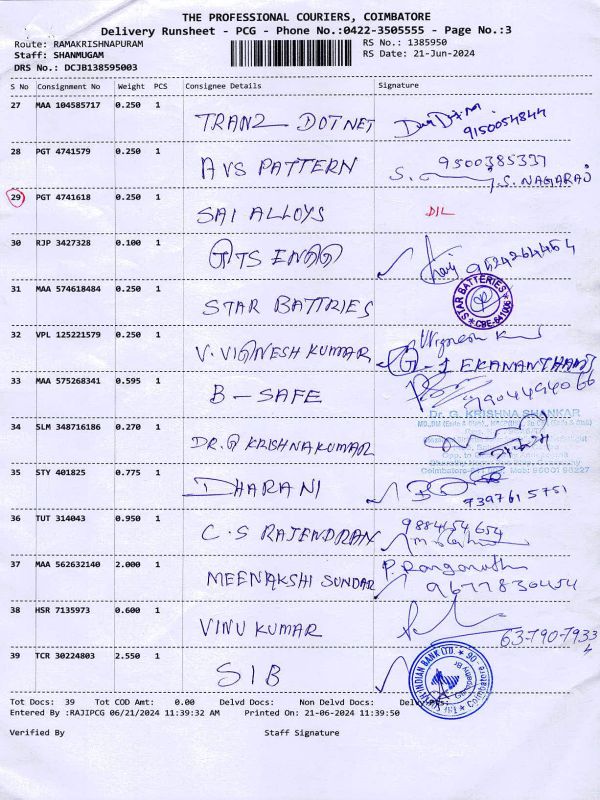 THE PROFESSIONAL COURIERS, COIMBATORE
Delivery Runsheet - PCG - Phone No.:0422-3505555 - Page No.:3
Route: RAMAKRISHNAPURAM RS No.: 1385950
Staff: SHANMUGAM RS Date: 21-Jun-2024
DRS No.: DCJB138595003
S No Consignment No Weight PCS Consignee Details Signature
27 MAA 104585717 0.250 1
TRANZ DOTNET 9150054844
28 PGT 4741579 0.250 1 9500385337
AVS PATTERN S. J.S. NAGARAJ
29 PGT 4741618 0.250 1
SAI ALLOYS DIL
30 RJP 3427328 0.100 1
GTS ENGG 9524264464
31 MAA 574618484 0.250 1
STAR BATTRIES STAR BATTERIES CBE-641006
32 VPL 125221579 0.250 1 Vignesh
V. VIGNESH KUMAR G-1 EKANANTHAM
33 MAA 575268341 0.595 1
B - SAFE 9904494066
Dr. G. KRISHNA SHANKAR
34 SLM 348716186 0.270 1
DR. G KRISHNAKUMAR
35 STY 401825 0.775 1
DHARANI 7397615751
36 TUT 314043 0.950 1 9884154654
C.S RAJENDRAN
37 MAA 562632140 2.000 1 P Ranganath
MEENAKSHI SUNDAR 9677830454
38 HSR 7135973 0.600 1
VINU KUMAR 63-790-7933
39 TCR 30224803 2.550 1
SIB THE SOUTH INDIAN BANK LTD. Coimbatore
Tot Docs: 39 Tot COD Amt: 0.00 Delvd Docs: Non Delvd Docs:
Entered By :RAJIPCG 06/21/2024 11:39:32 AM Printed On: 21-06-2024 11:39:50
Verified By Staff Signature